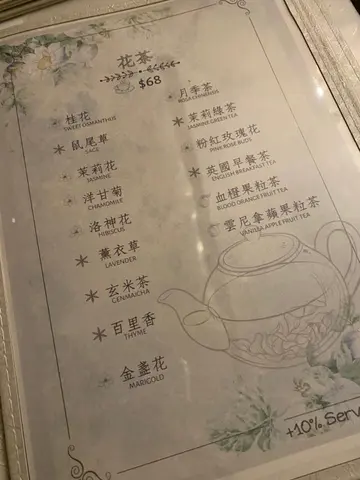 花茶
$68
桂花
SWEET OSMANTHUS
鼠尾草
SAGE
茉莉花
JASMINE
洋甘菊
CHAMOMILE
洛神花
HIBISCUS
薰衣草
LAVENDER
玄米茶
GENMAICHA
百里香
THYME
金盞花
MARIGOLD
月季茶
ROSA CHINENSIS
茉莉綠茶
JASMINE GREEN TEA
粉紅玫瑰花
PINK ROSE BUDS
英國早餐茶
ENGLISH BREAKFAST TEA
血橙果粒茶
BLOOD ORANGE FRUIT TEA
雲尼拿蘋果粒茶
VANILLA APPLE FRUIT TEA
+10% Serv